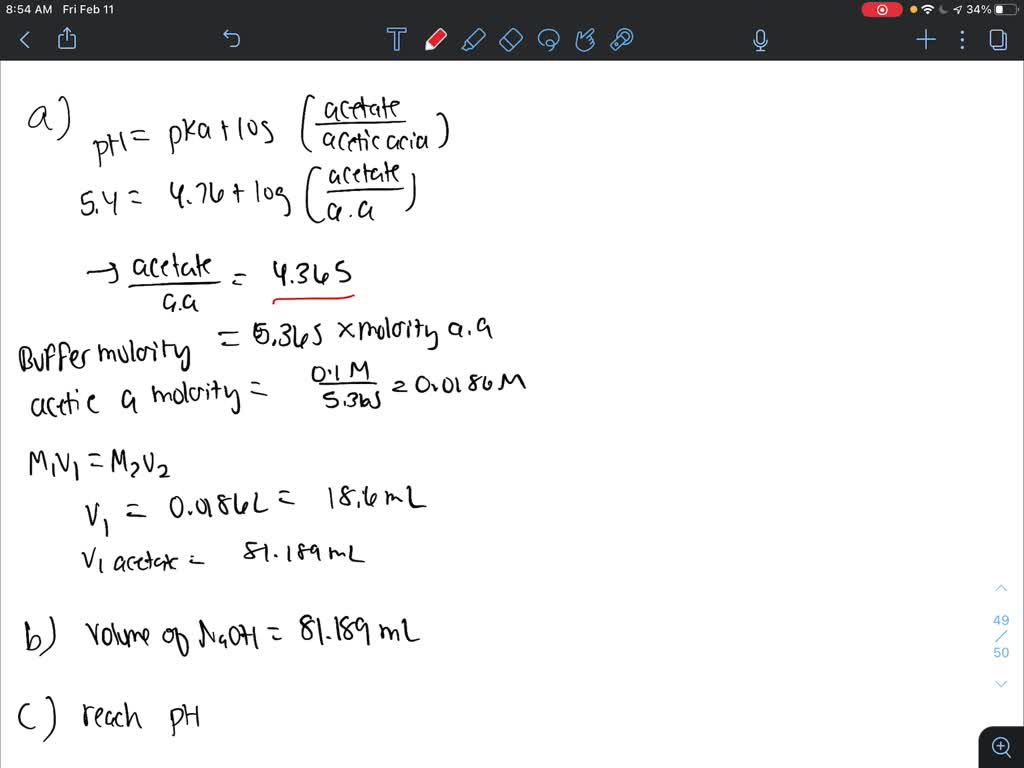 8:54 AM Fri Feb 11
34%
a)
pH = pKa + log (acetate / acetic acid)
5.4 = 4.76 + log (acetate / a.a)
→ acetate / a.a = 4.365
Buffer molarity = 5.365 × molarity a.a
acetic a molarity = 0.1 M / 5.365 = 0.0186 M
M₁V₁ = M₂V₂
V₁ = 0.0186L = 18.6 mL
V₁ acetate = 81.189 mL
b) Volume of NaOH = 81.189 mL
c) reach pH
49
/
50